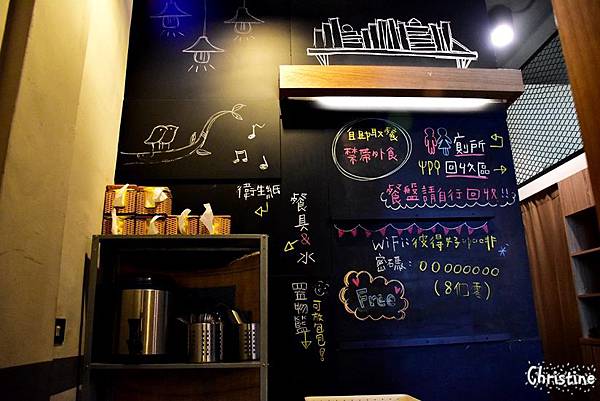 自助取餐
禁帶外食
廁所
回收區
餐盤請自行回收!!
衛生紙
餐具&水
WiFi:彼得好咖啡
密碼:00000000
(8個零)
Free
置物籃
可放包包!
Christine